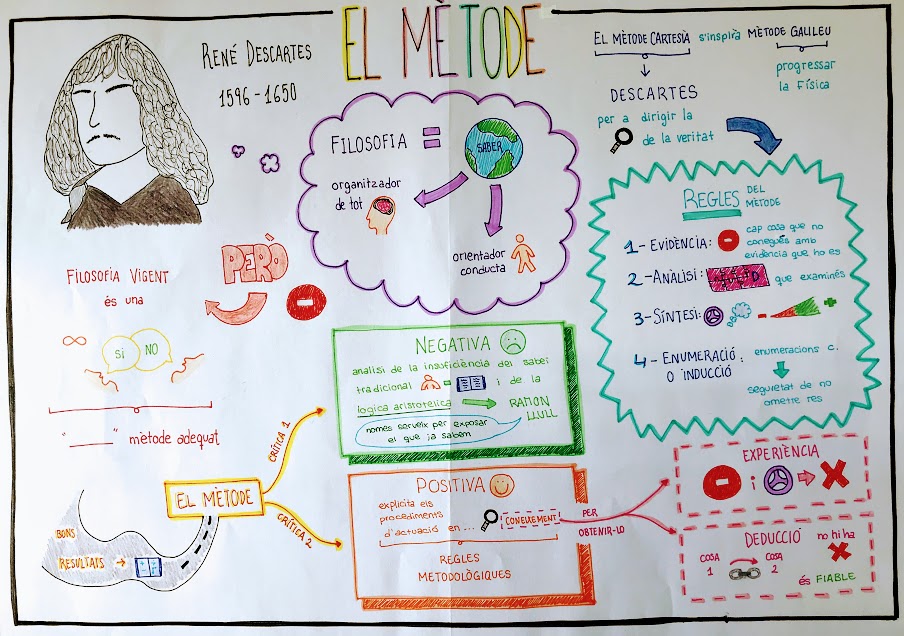 EL MÈTODE
RENÉ DESCARTES
1596 - 1650
FILOSOFIA =
SABER
organitzador
de tot
orientador
conducta
EL MÈTODE CARTESIÀ s'inspirà MÈTODE GALILEU
progressar
la Física
DESCARTES
per a dirigir la
de la veritat
REGLES DEL
MÈTODE
1- EVIDÈNCIA: cap cosa que no
conegués amb
evidència que ho es
2- ANÀLISI: que examinés
3- SÍNTESI: - +
4- ENUMERACIÓ: enumeracions c.
O INDUCCIÓ
seguretat de no
ometre res
PERÒ
FILOSOFIA VIGENT
és una
∞
SI NO
"______" mètode adequat
EL MÈTODE
BONS
RESULTATS →
CRÍTICA 1
CRÍTICA 2
NEGATIVA
analisi de la insuficiència del saber
tradicional = i de la
logica aristotelica RAMON
LLULL
nomes serveix per exposar
el que ja sabem
POSITIVA
explicita els
procediments
d'actuació en ...
REGLES
METODOLÒGIQUES
PER
OBTENIR-LO
EXPERIÈNCIA
i
DEDUCCIÓ no hi ha
COSA COSA
1 2
és FIABLE